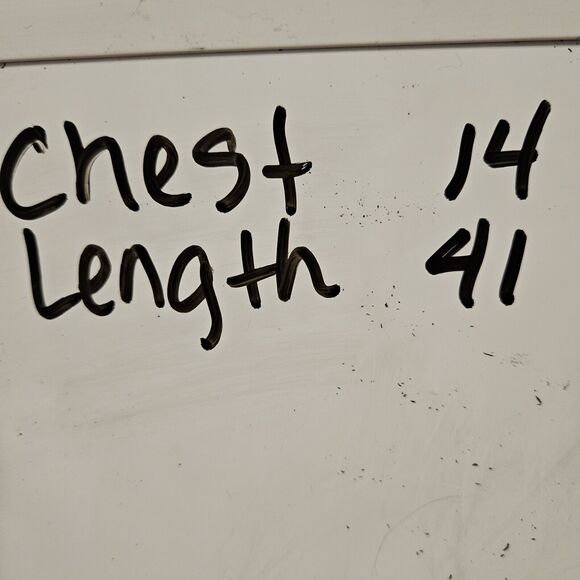 Chest 14
Length 41